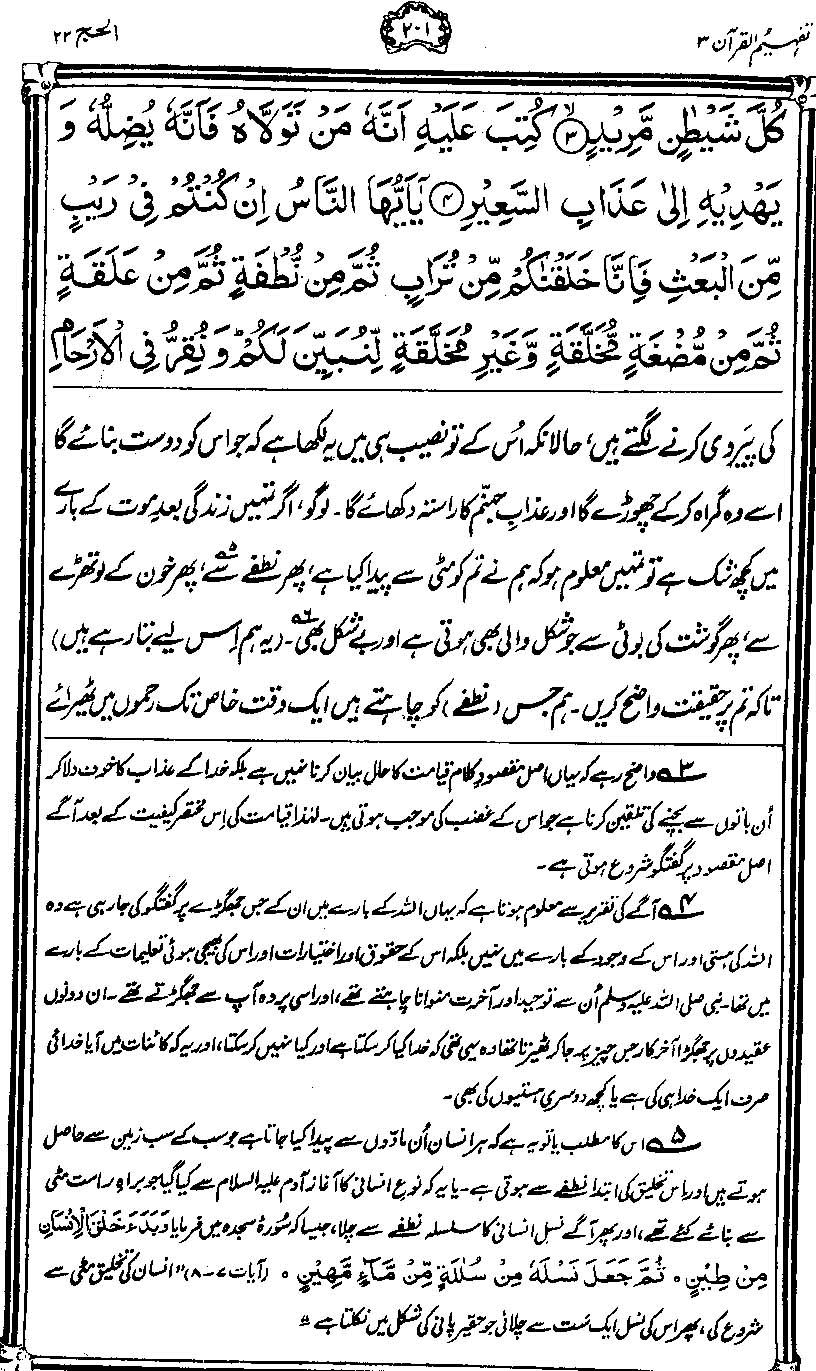 تفہیم القرآن ۳
۲۰۱
الحج ۲۲
كُلَّ شَيْطٰنٍ مَّرِيْدٍ ۝۳ كُتِبَ عَلَيْهِ اَنَّهٗ مَنْ تَوَلَّاهُ فَاَنَّهٗ يُضِلُّهٗ وَ
يَهْدِيْهِ اِلٰى عَذَابِ السَّعِيْرِ ۝۴ يٰۤاَيُّهَا النَّاسُ اِنْ كُنْتُمْ فِيْ رَيْبٍ
مِّنَ الْبَعْثِ فَاِنَّا خَلَقْنٰكُمْ مِّنْ تُرَابٍ ثُمَّ مِنْ نُّطْفَةٍ ثُمَّ مِنْ عَلَقَةٍ
ثُمَّ مِنْ مُّضْغَةٍ مُّخَلَّقَةٍ وَّغَيْرِ مُخَلَّقَةٍ لِّنُبَيِّنَ لَكُمْ ؕ وَنُقِرُّ فِي الْاَرْحَامِ
کی پیروی کرنے لگتے ہیں، حالانکہ اُس کے تو نصیب ہی میں یہ لکھا ہے کہ جو اس کو دوست بنائے گا
اسے وہ گمراہ کر کے چھوڑے گا اور عذابِ جہنّم کا راستہ دکھائے گا۔ لوگو، اگر تمہیں زندگی بعدِ موت کے بارے
میں کچھ شک ہے تو تمہیں معلوم ہو کہ ہم نے تم کو مٹی سے پیدا کیا ہے، پھر نطفے سے۵، پھر خون کے لوتھڑے
سے، پھر گوشت کی بوٹی سے جو شکل والی بھی ہوتی ہے اور بے شکل بھی۶۔ (یہ ہم اِس لیے بتا رہے ہیں)
تاکہ تم پر حقیقت واضح کریں۔ ہم جس (نطفے) کو چاہتے ہیں ایک وقت خاص تک رحموں میں ٹھیرائے
۳؎ واضح رہے کہ یہاں اصل مقصودِ کلام قیامت کا حال بیان کرنا نہیں ہے بلکہ خدا کے عذاب کا خوف دلا کر
اُن باتوں سے بچنے کی تلقین کرنا ہے جو اس کے غضب کی موجب ہوتی ہیں۔ لہٰذا قیامت کی اِس مختصر کیفیت کے بعد آگے
اصل مقصود پر گفتگو شروع ہوتی ہے۔
۴؎ آگے کی تقریر سے معلوم ہوتا ہے کہ یہاں اللہ کے بارے میں ان کے جس جھگڑے پر گفتگو کی جا رہی ہے وہ
اللہ کی ہستی اور اس کے وجود کے بارے میں نہیں بلکہ اس کے حقوق اور اختیارات اور اس کی بھیجی ہوئی تعلیمات کے بارے
میں تھا۔ نبی صلی اللہ علیہ وسلم اُن سے توحید اور آخرت منوانا چاہتے تھے، اور اسی پر وہ آپ سے جھگڑتے تھے۔ ان دونوں
عقیدوں پر جھگڑا آخر کار جس چیز پر جا کر ٹھیرتا تھا وہ یہی تھی کہ خدا کیا کر سکتا ہے اور کیا نہیں کر سکتا، اور یہ کہ کائنات میں آیا خدائی
صرف ایک خدا ہی کی ہے یا کچھ دوسری ہستیوں کی بھی۔
۵؎ اس کا مطلب یا تو یہ ہے کہ ہر انسان اُن مادّوں سے پیدا کیا جاتا ہے جو سب کے سب زمین سے حاصل
ہوتے ہیں اور اس تخلیق کی ابتدا نطفے سے ہوتی ہے۔ یا یہ کہ نوعِ انسانی کا آغاز آدم علیہ السلام سے کیا گیا جو براہِ راست مٹی
سے بنائے گئے تھے، اور پھر آگے نسل انسانی کا سلسلہ نطفے سے چلا، جیسا کہ سُورۂ سجدہ میں فرمایا وَبَدَءَ خَلْقَ الْاِنْسَانِ
مِنْ طِيْنٍ ہ ثُمَّ جَعَلَ نَسْلَهٗ مِنْ سُلٰلَةٍ مِّنْ مَّآءٍ مَّهِيْنٍ ہ (آیات ۷-۸) "انسان کی تخلیق مٹی سے
شروع کی، پھر اس کی نسل ایک ست سے چلائی جو حقیر پانی کی شکل میں نکلتا ہے"